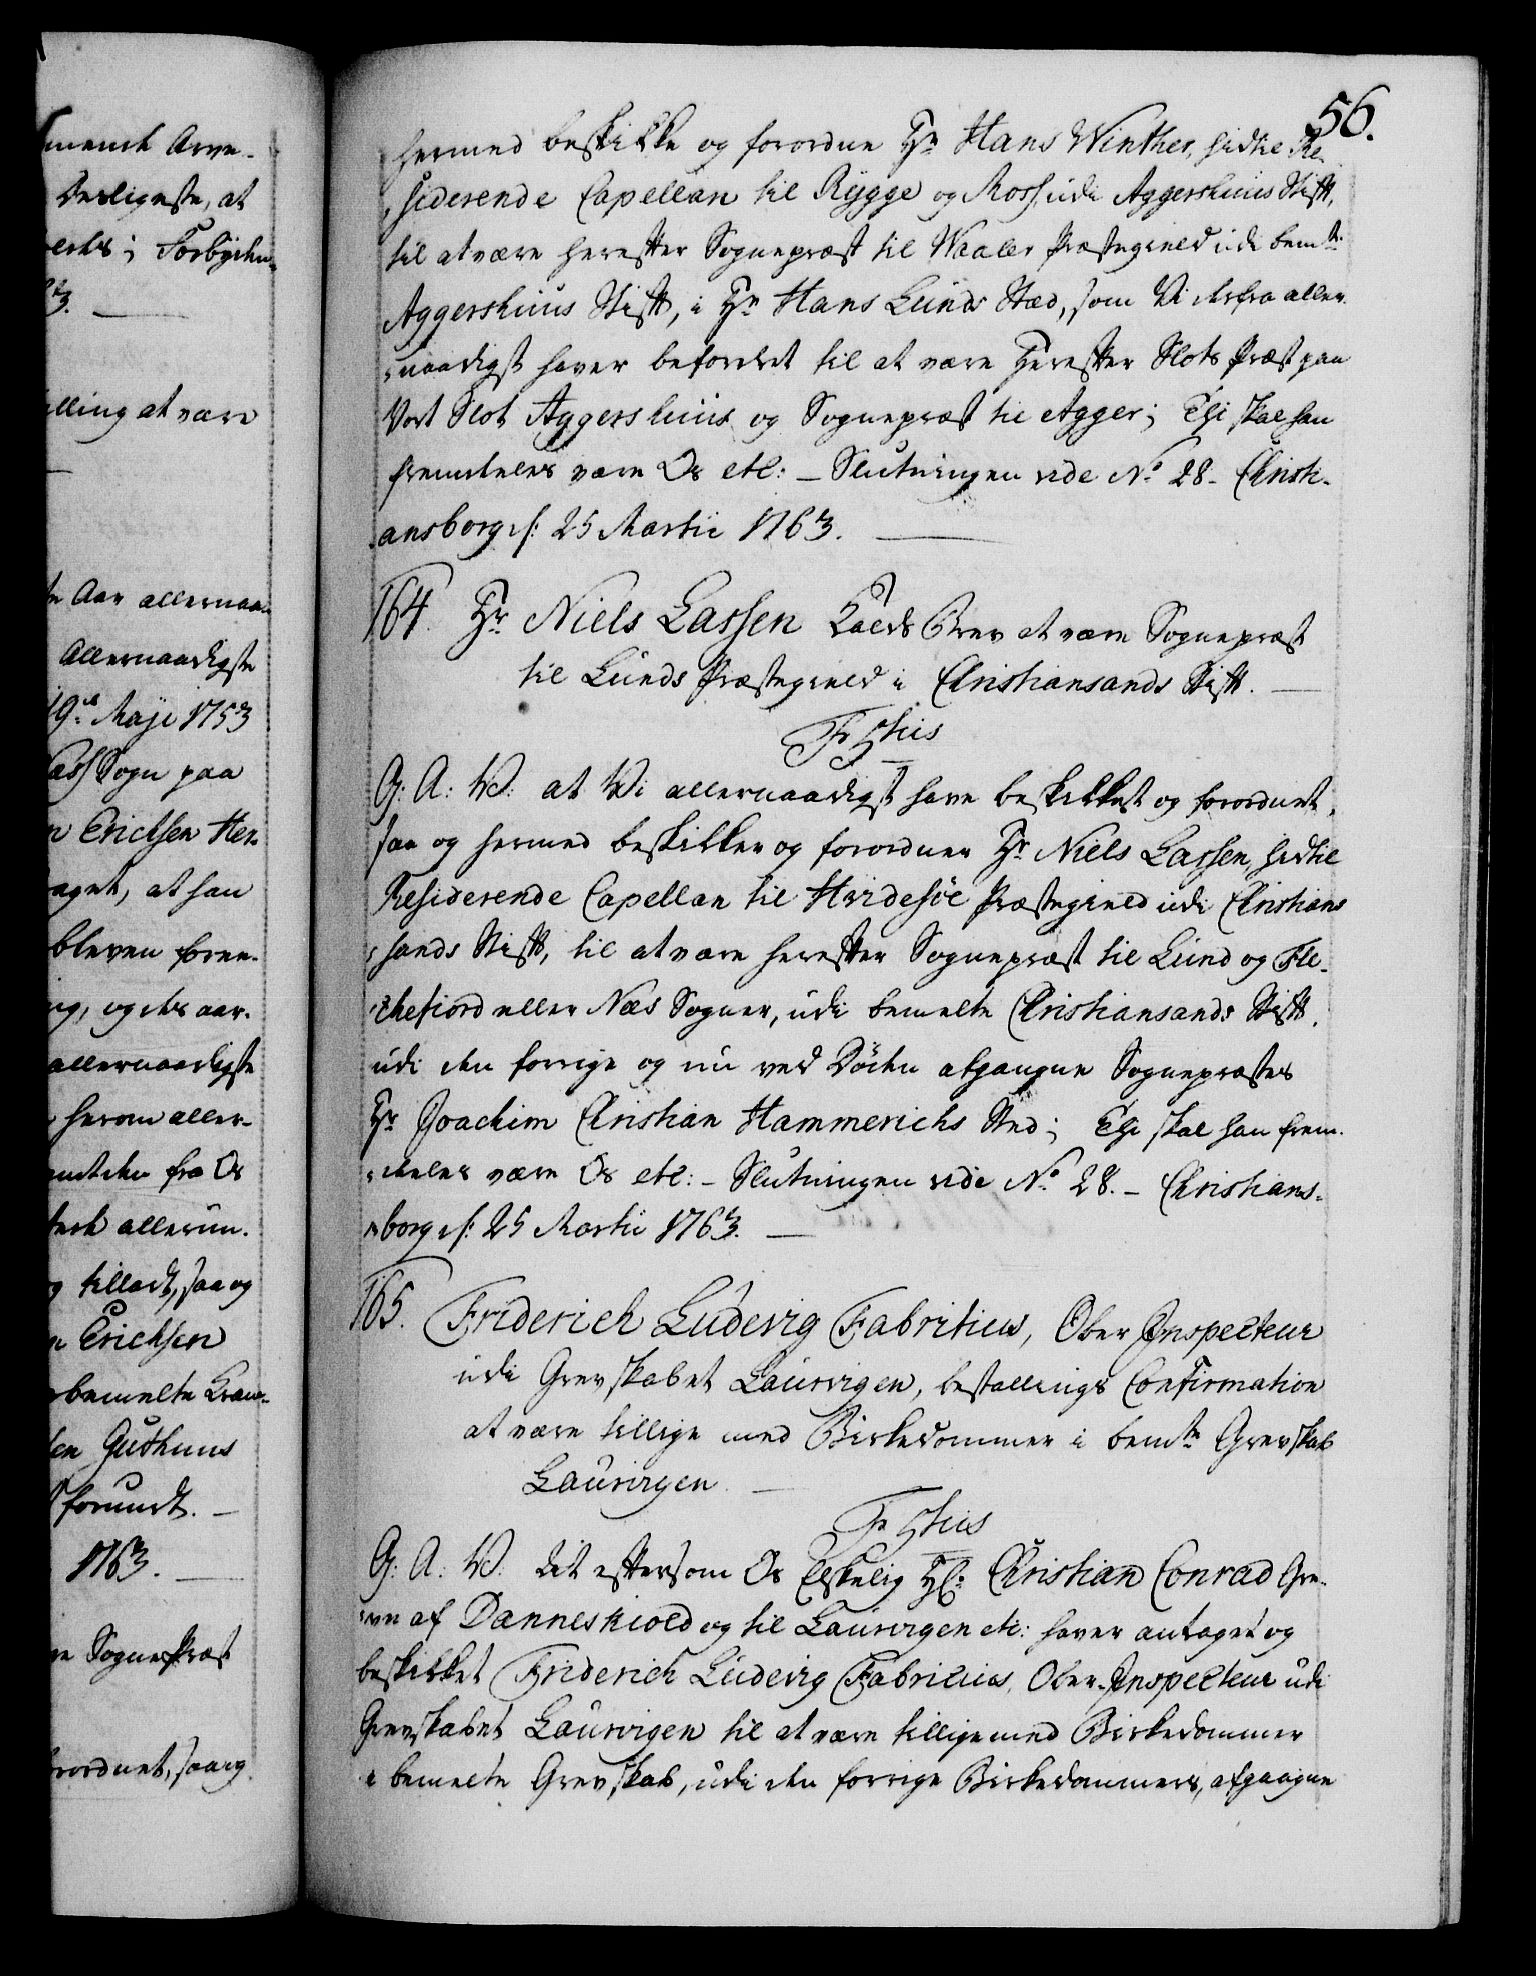 ment Arve-
Desligeste, at
Forbyden-
1763.
lling at være
te Aar allernaa-
Allernaadigste
19de Maji 1753
Næss Sogn paa
n Erichsen Her-
aget, at han
bleven foree-
ig, og des aar-
allernaadigste
herom aller-
fra Os
allerun-
og tilladt, saa og
n Erichsen
bemelte
Guthuus
forundt. —
1763. —
re Sogne Præst
forordnet, saa og
56.
hermed beskikke og forordne Hr. Hans Winther, hidtil Re-
siderende Capellan til Rygge og Moss udi Aggershuus Stift,
til at være herefter Sognepræst til Waaler Præstegield udi bemte
Aggershuus Stift, i Hr. Hans Lunds Stæd, som Vi derfra aller-
naadigst haver befordret til at være Herefter Slots Præst paa
Vort Slot Aggershuus og Sognepræst til Agger; Thi skal han
fremdeles være Os etc: — Slutningen vide No. 28. Christi-
ansborg d: 25 Martii 1763. —
164. Hr. Niels Lassen Kalds Brev at være Sognepræst
til Lunds Præstegield i Christiansands Stift. —
Fr 5tus
G: A: W: at Vi allernaadigst have beskikket og forordnet,
saa og hermed beskikker og forordner Hr. Niels Lassen, hidtil
Residerende Capellan til Hvidesøe Præstegield udi Christian-
sands Stift, til at være herefter Sognepræst til Lund og Fle-
ckefiord eller Næs Sogner, udi bemelte Christiansands Stift,
udi den forrige og nu ved Døden afgangne Sognepræstes
Hr. Joachim Christian Hammerichs Sted; Thi skal han frem-
deles være Os etc: — Slutningen vide No. 28. — Christians-
borg d: 25 Martii 1763. —
165. Friderich Ludevig Fabritius, Ober Inspecteur
udi Grevskabet Laurvigen, bestallings Confirmation
at være tillige med Birkedommer i bemte Grevskab
Laurvigen. —
Fr 5tus
G: A: W: Dit eftersom Os Elskelig Hl: Christian Conrad Gre-
ve af Danneskiold og til Laurvigen etc: haver antaget og
beskikket Friderich Ludevig Fabritius, Ober-Inspecteur udi
Grevskabet Laurvigen til at være tillige med Birkedommer
i bemelte Grevskab, udi den forrige Birkedommers, afgangne